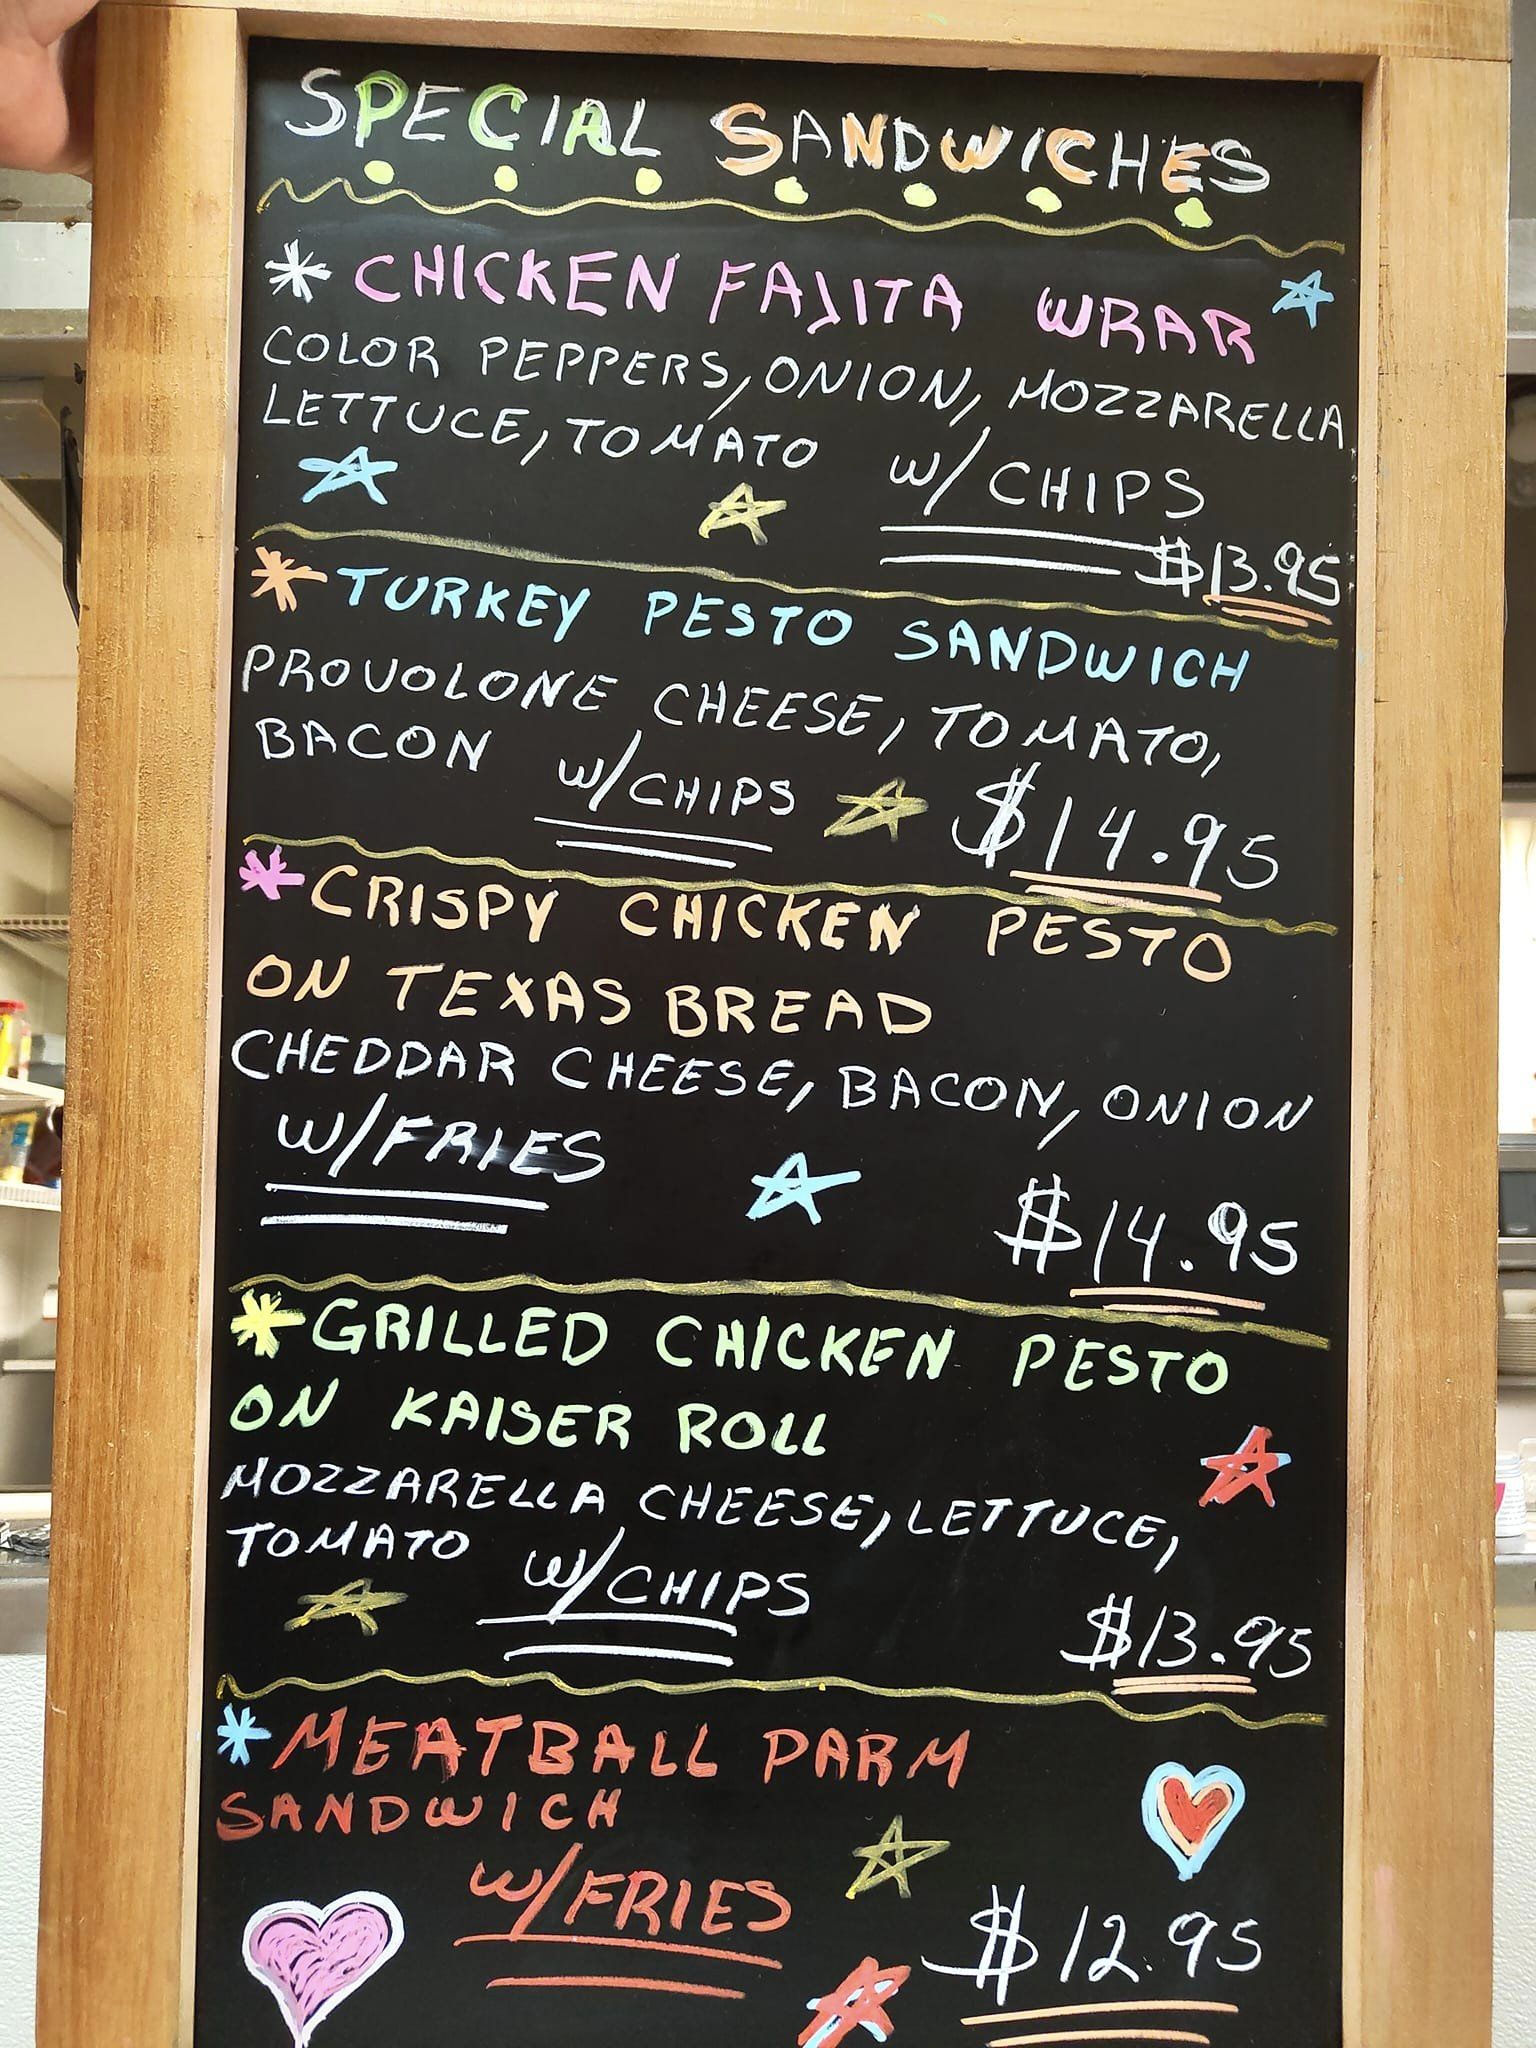 SPECIAL SANDWICHES
* CHICKEN FAJITA WRAR
COLOR PEPPERS, ONION, MOZZARELLA
LETTUCE, TOMATO W/CHIPS
$13.95
* TURKEY PESTO SANDWICH
PROVOLONE CHEESE, TOMATO,
BACON W/CHIPS $14.95
* CRISPY CHICKEN PESTO
ON TEXAS BREAD
CHEDDAR CHEESE, BACON, ONION
W/FRIES
$14.95
* GRILLED CHICKEN PESTO
ON KAISER ROLL
MOZZARELLA CHEESE, LETTUCE,
TOMATO W/CHIPS
$13.95
* MEATBALL PARM
SANDWICH
W/FRIES
$12.95